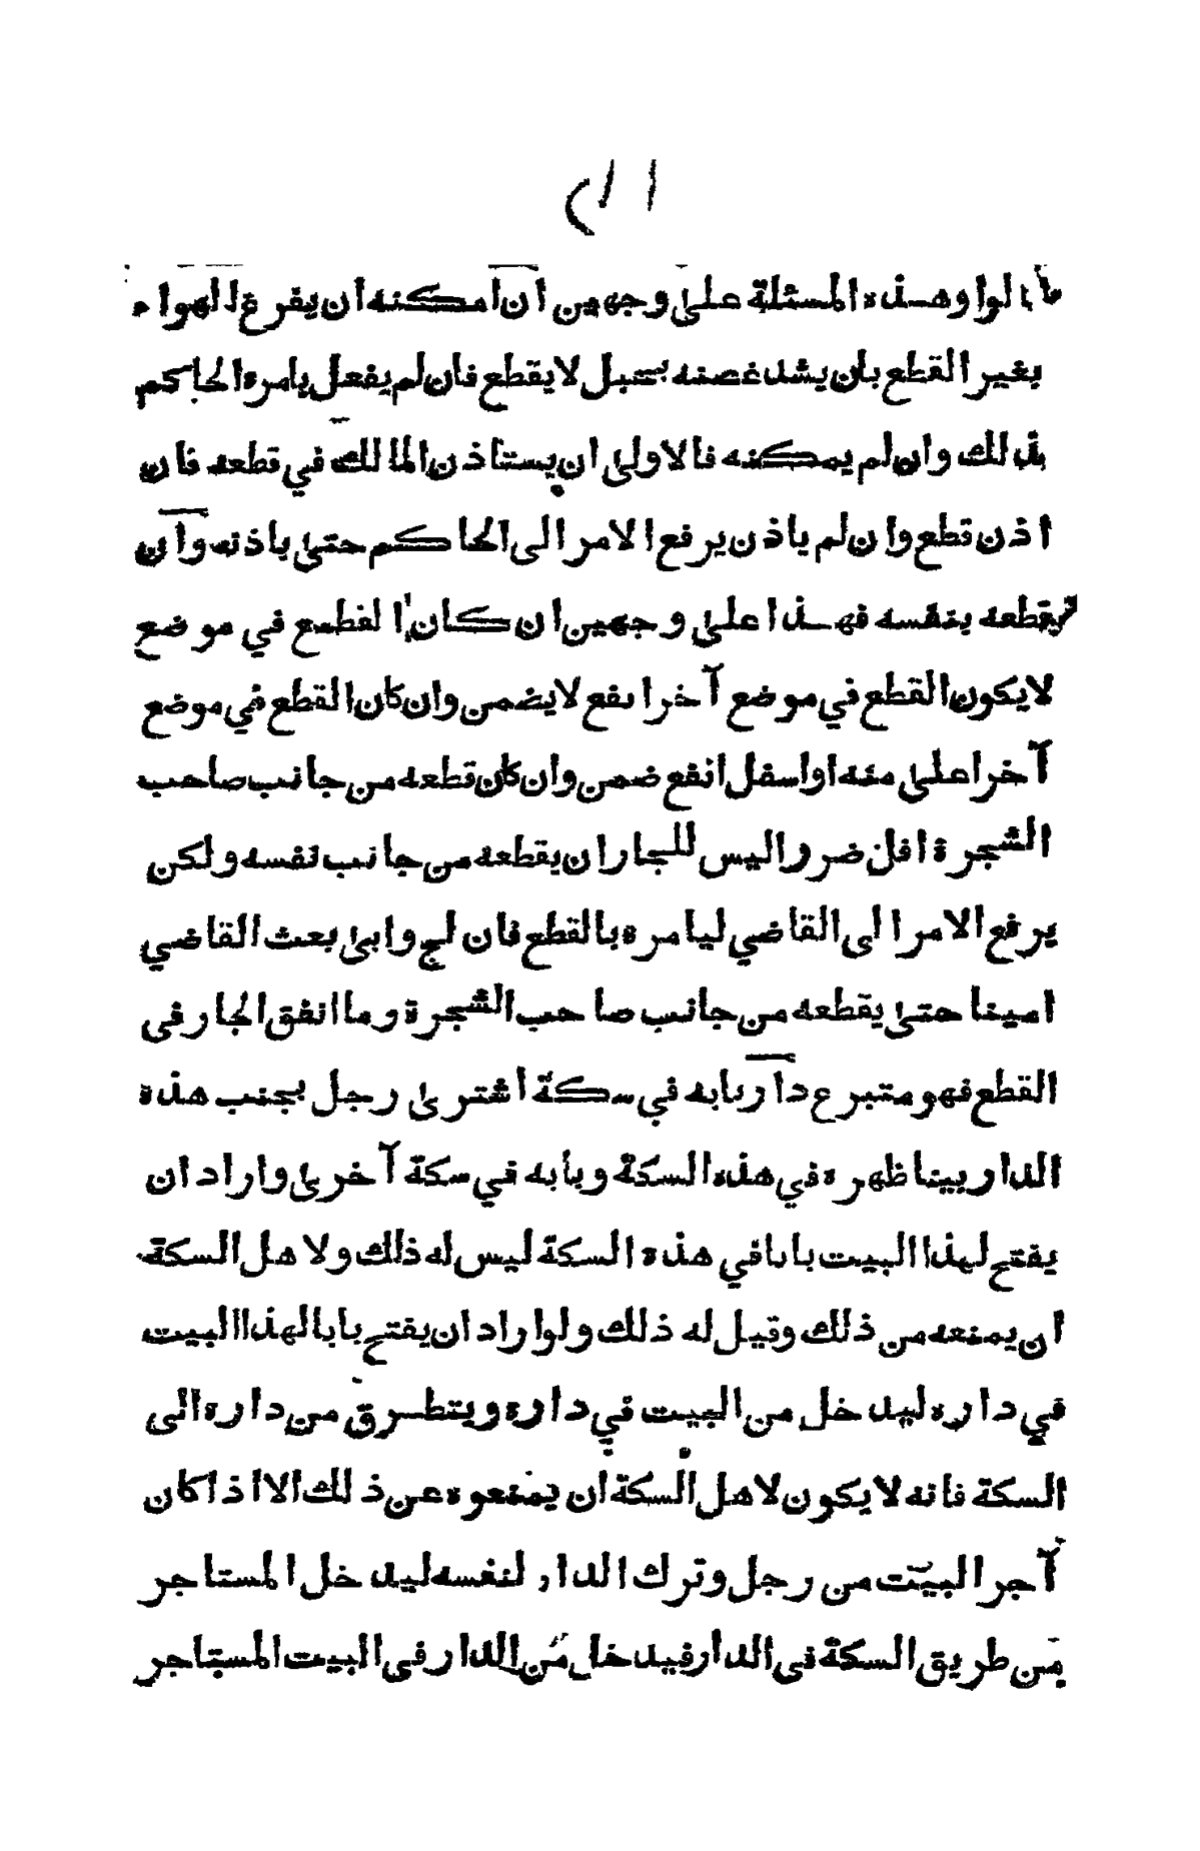 قالوا وهذه المسئلة على وجهين ان امكنه ان يفرغ الهواء
بغير القطع بان يشد غصنه بحبل لا يقطع فان لم يفعل يامره الحاكم
بذلك وان لم يمكنه فالاولى ان يستاذن المالك في قطعه فان
اذن قطع وان لم ياذن يرفع الامر الى الحاكم حتى ياذنه وان
يقطعه بنفسه فهذا على وجهين ان كان القطع في موضع
لا يكون القطع في موضع آخر انفع لا يضمن وان كان القطع في موضع
آخر اعلى منه او اسفل انفع ضمن وان كان قطعه من جانب صاحب
الشجرة اقل ضررا ليس للجار ان يقطعه من جانب نفسه ولكن
يرفع الامر الى القاضي ليامره بالقطع فان لج وابى بعث القاضي
امينا حتى يقطعه من جانب صاحب الشجرة وما انفق الجار في
القطع فهو متبرع دار بابه في سكة اشترى رجل بجنب هذه
الدار بيتا ظهره في هذه السكة وبابه في سكة آخرى واراد ان
يفتح لهذا البيت بابا في هذه السكة ليس له ذلك ولاهل السكة
ان يمنعه من ذلك وقيل له ذلك ولو اراد ان يفتح بابا لهذا البيت
في داره ليدخل من البيت في داره ويتطرق من داره الى
السكة فانه لا يكون لاهل السكة ان يمنعوه عن ذلك الا اذا كان
آجر البيت من رجل وترك الدار لنفسه ليدخل المستاجر
من طريق السكة في الدار فيدخل من الدار في البيت المستاجر